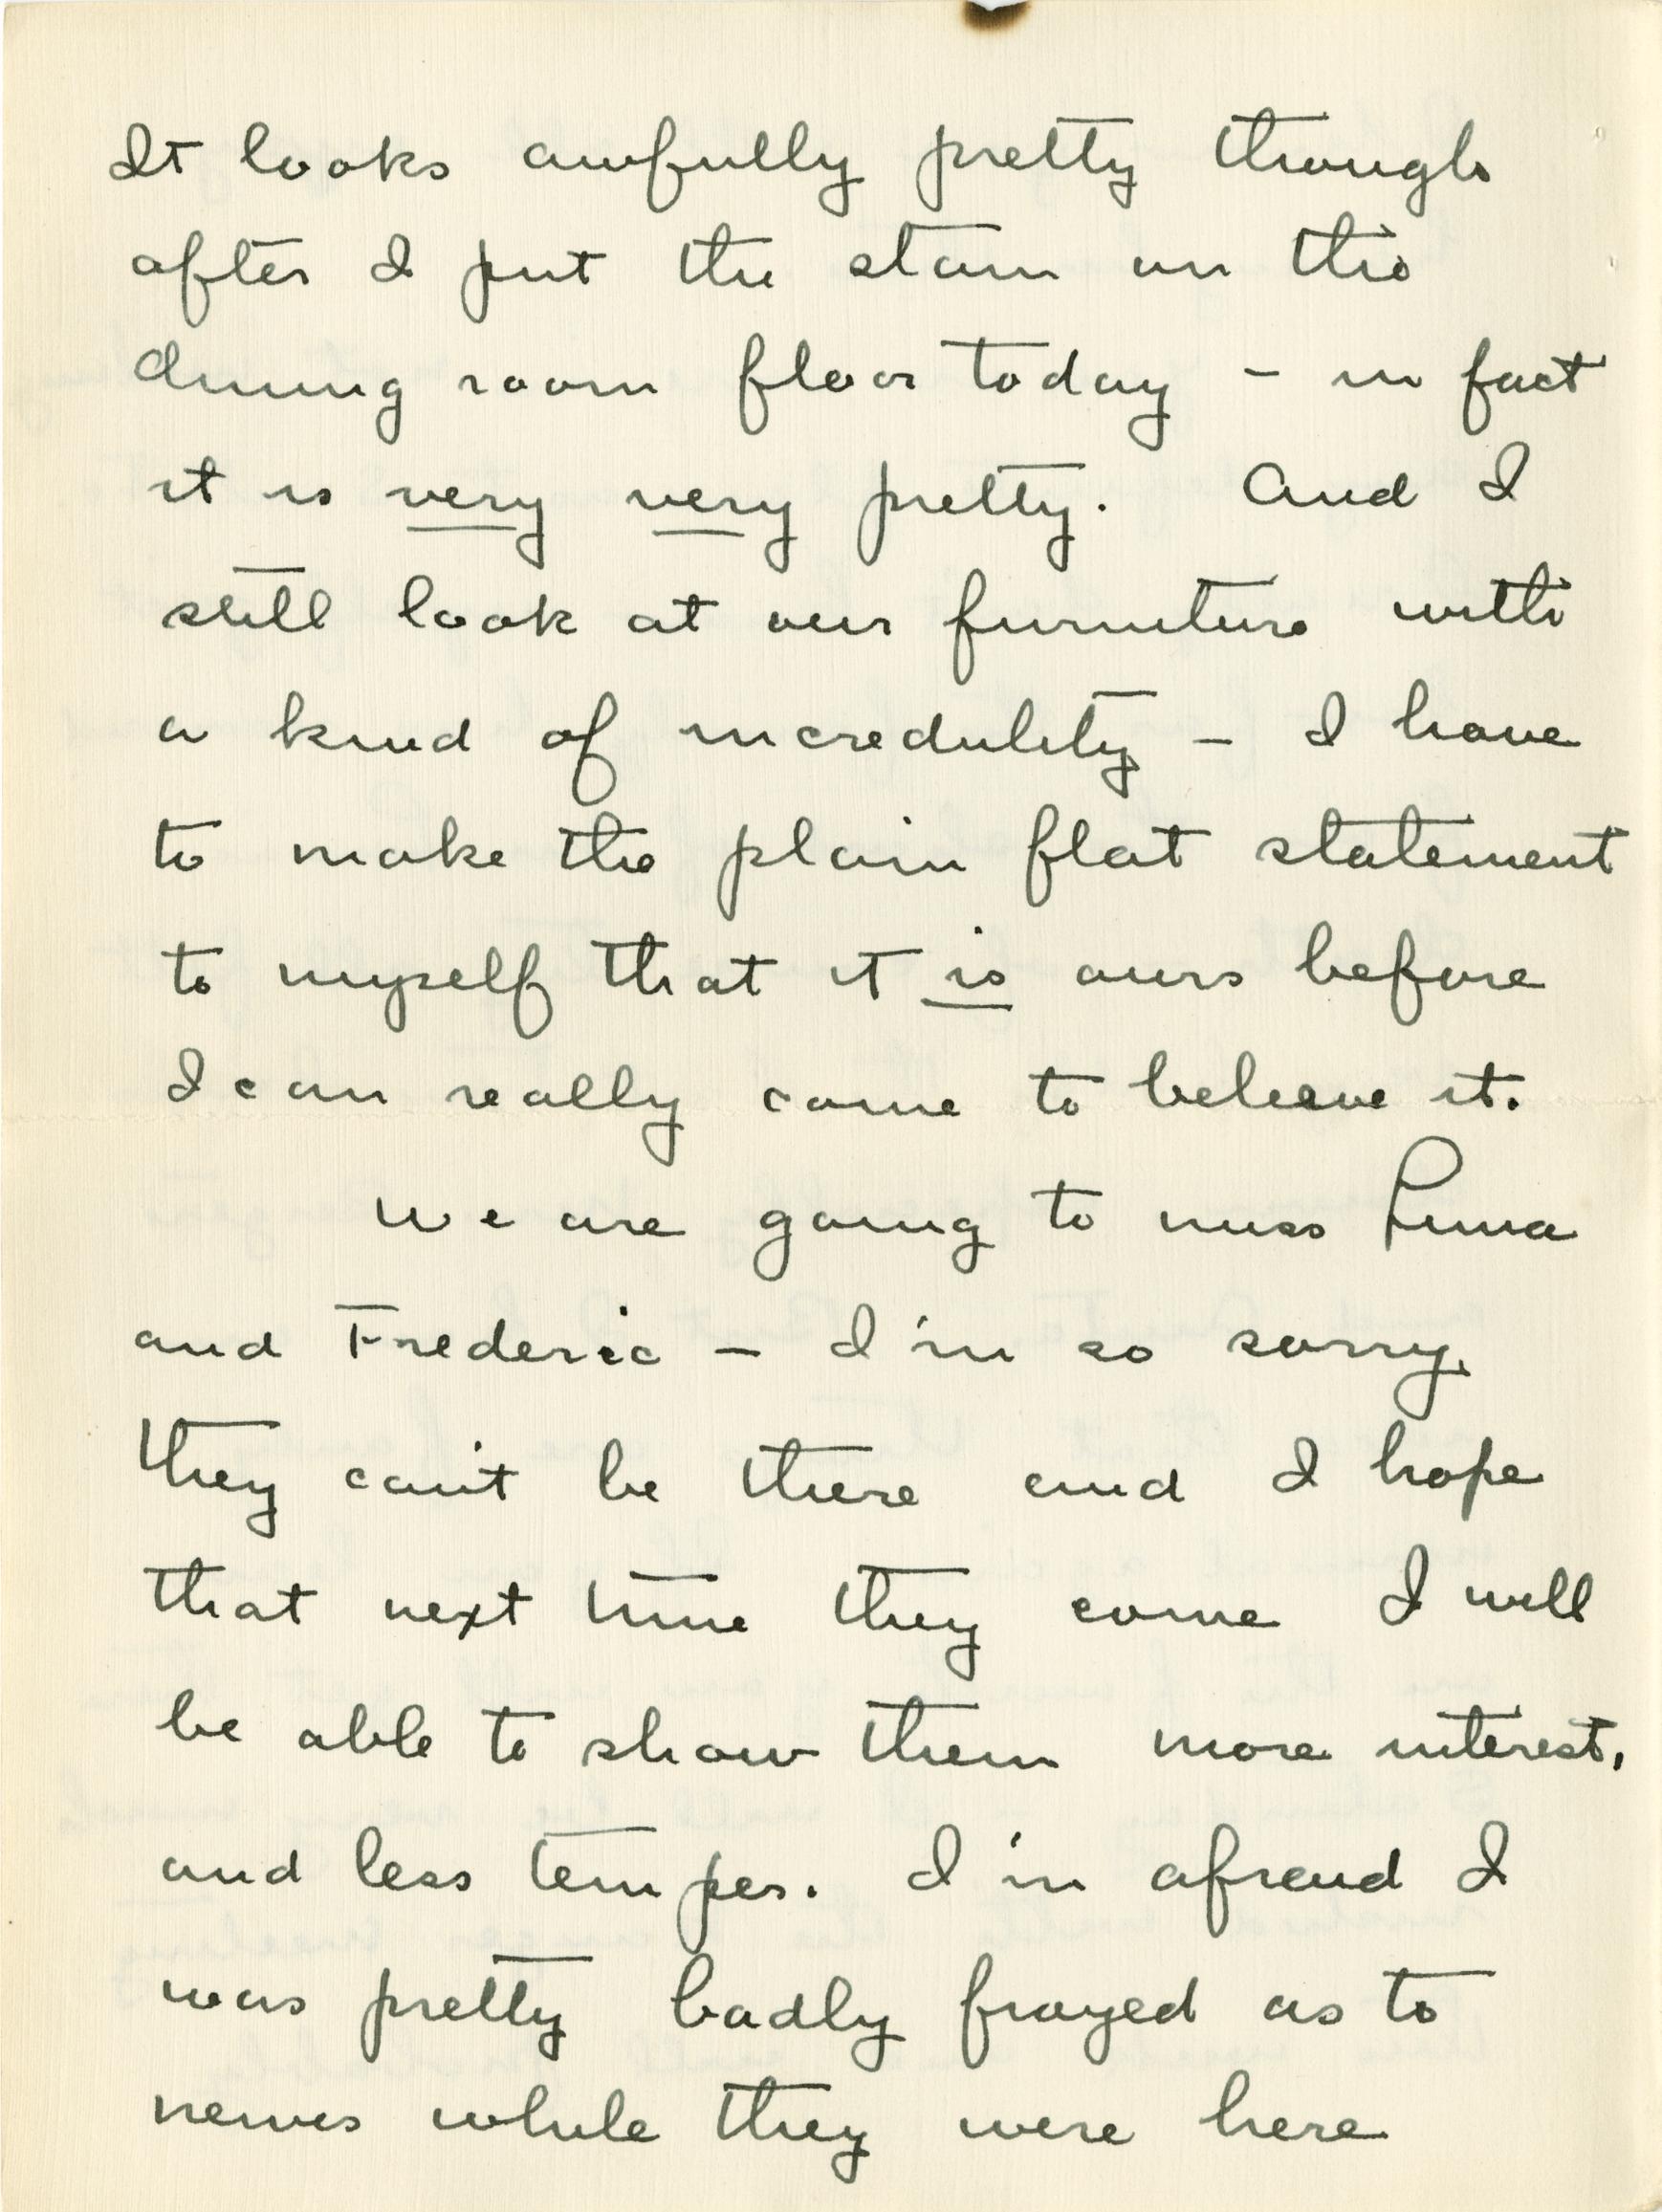 It looks awfully pretty though
after I put the stain on the
dining room floor today - in fact
it is very very pretty. And I
still look at our furniture with
a kind of incredulity - I have
to make the plain flat statement
to myself that it is ours before
I can really come to believe it.
We are going to miss
and Frederic - I'm so sorry
they can't be there and I hope
that next time they come I will
be able to show them more interest,
and less temper. I'm afraid I
was pretty badly frayed as to
nerves while they were here